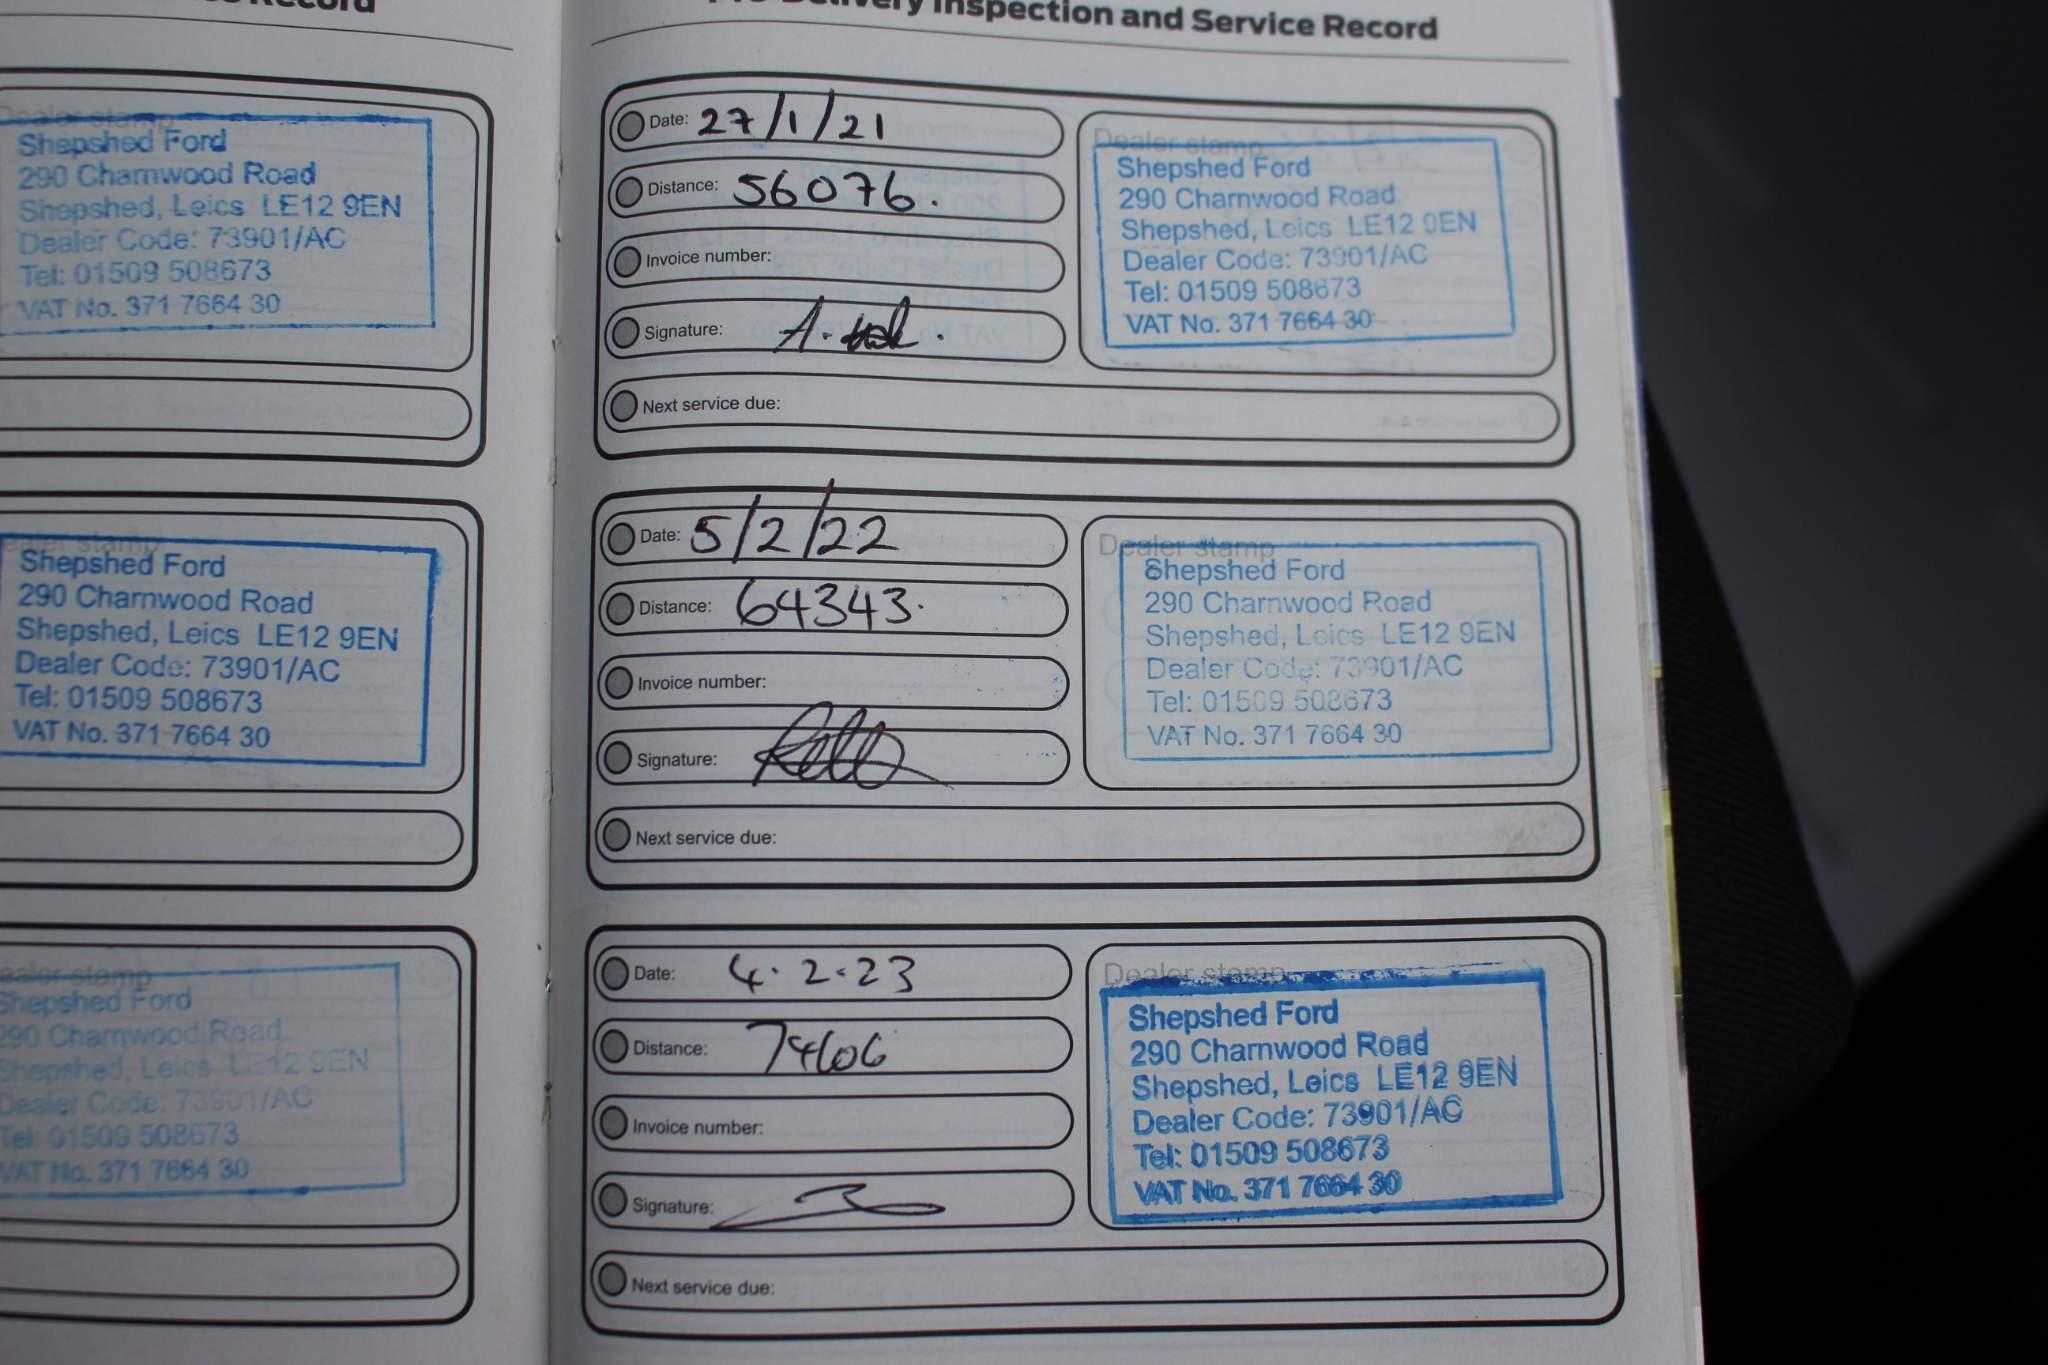 Record
Dealer stamp
Shepshed Ford
290 Charnwood Road
Shepshed, Leics LE12 9EN
Dealer Code: 73901/AC
Tel: 01509 508673
VAT No. 371 7664 30
Dealer stamp
Shepshed Ford
290 Charnwood Road
Shepshed, Leics LE12 9EN
Dealer Code: 73901/AC
Tel: 01509 508673
VAT No. 371 7664 30
ealer stamp
Shepshed Ford
290 Charnwood Road
Shepshed, Leics LE12 9EN
Dealer Code: 73901/AC
Tel: 01509 508673
VAT No. 371 7664 30
Delivery Inspection and Service Record
Date: 27/1/21
Distance: 56076.
Invoice number:
Signature:
Next service due:
Dealer stamp
Shepshed Ford
290 Charnwood Road
Shepshed, Leics LE12 9EN
Dealer Code: 73901/AC
Tel: 01509 508673
VAT No. 371 7664 30
Date: 5/2/22
Distance: 64343.
Invoice number:
Signature:
Next service due:
Dealer stamp
Shepshed Ford
290 Charnwood Road
Shepshed, Leics LE12 9EN
Dealer Code: 73901/AC
Tel: 01509 508673
VAT No. 371 7664 30
Date: 4.2.23
Distance: 74606
Invoice number:
Signature:
Next service due:
Dealer stamp
Shepshed Ford
290 Charnwood Road
Shepshed, Leics LE12 9EN
Dealer Code: 73901/AC
Tel: 01509 508673
VAT No. 371 7664 30